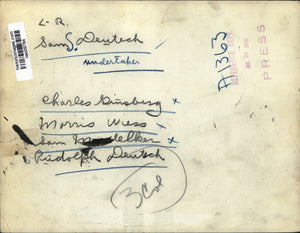 L-R.
Sam J. Deutsch
undertaker
Charles Ginsberg x
Morris Wess x
Sam Mandelker x
Rudolph Deutsch
3 Col
A1363
PRESS